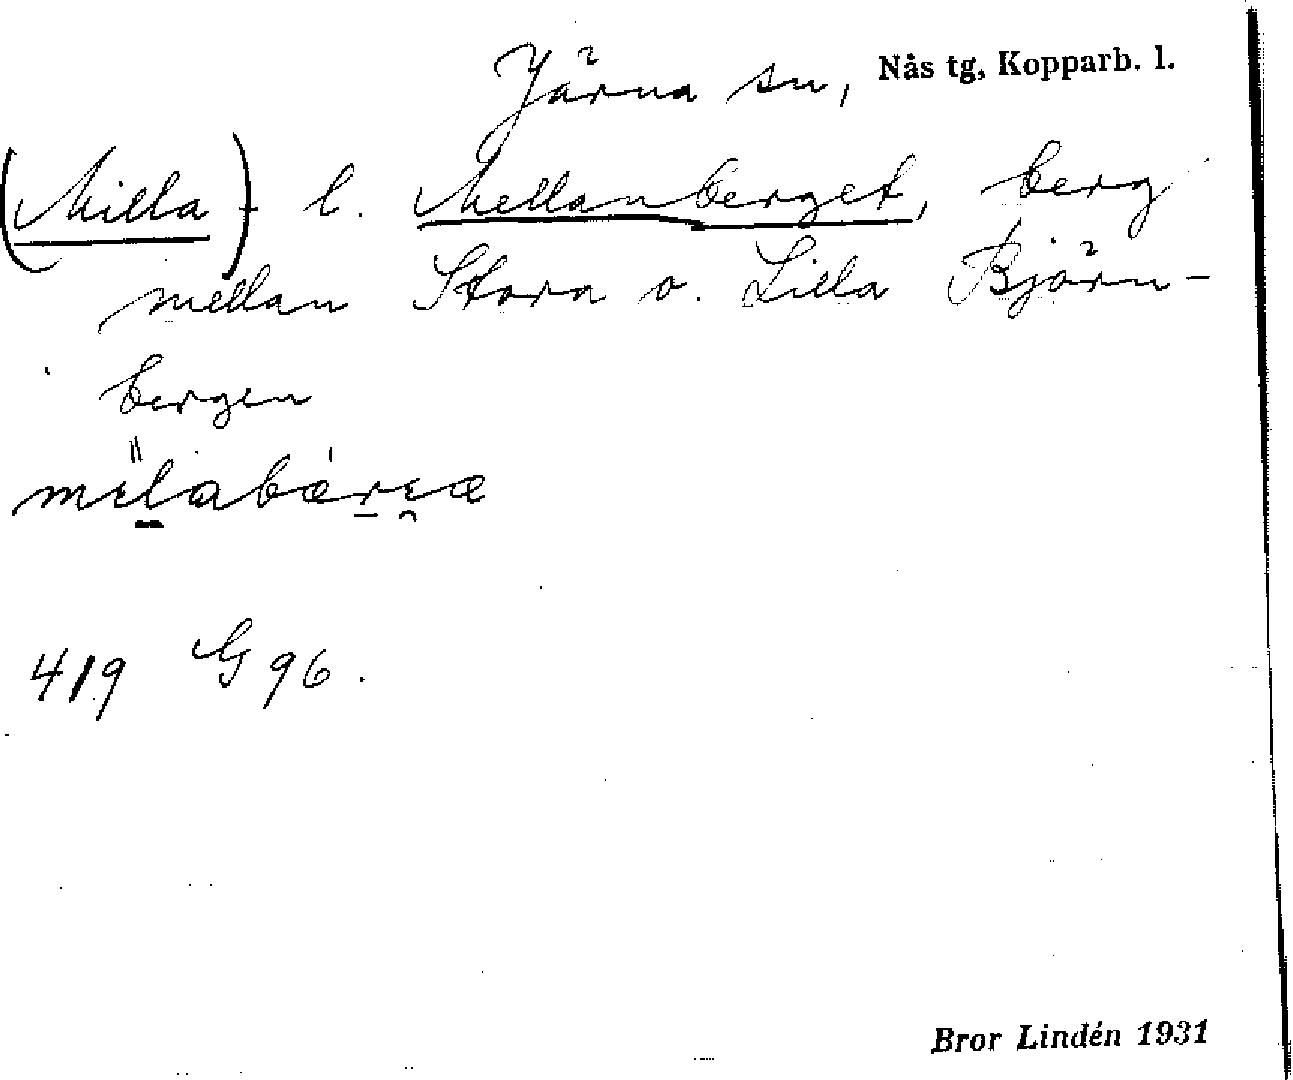 Järna sn, Nås tg, Kopparb. l.
(Milla)- l. Mellanberget, berg
mellan Stora o. Lilla Björn-
bergen
419 G 96.
Bror Lindén 1931